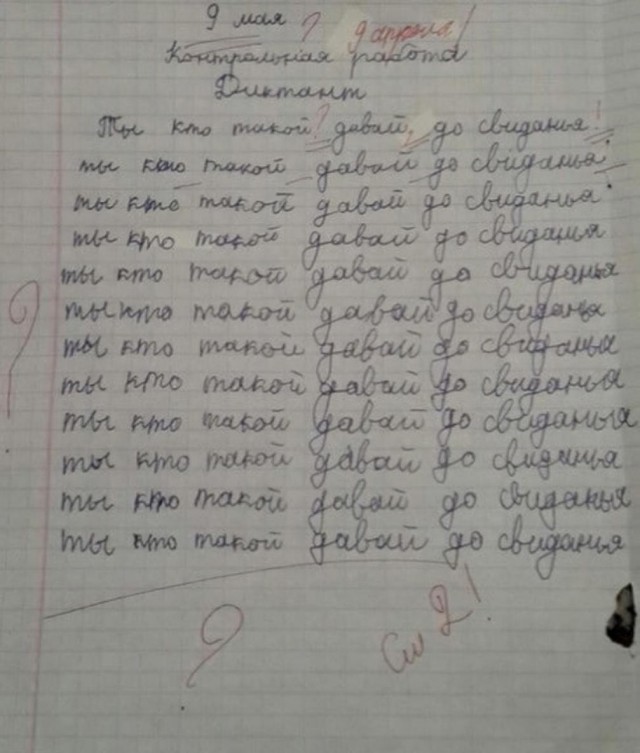 9 мая ? 9 апреля!
Контрольная работа
Диктант
Ты кто такой? давай, до свиданья!
ты кто такой давай до свиданья
ты кто такой давай до свиданья
ты кто такой давай до свиданья
ты кто такой давай до свиданья
ты кто такой давай до свиданья
ты кто такой давай до свиданья
ты кто такой давай до свиданья
ты кто такой давай до свиданья
ты кто такой давай до свиданья
ты кто такой давай до свиданья
ты кто такой давай до свиданья
?
См 2!